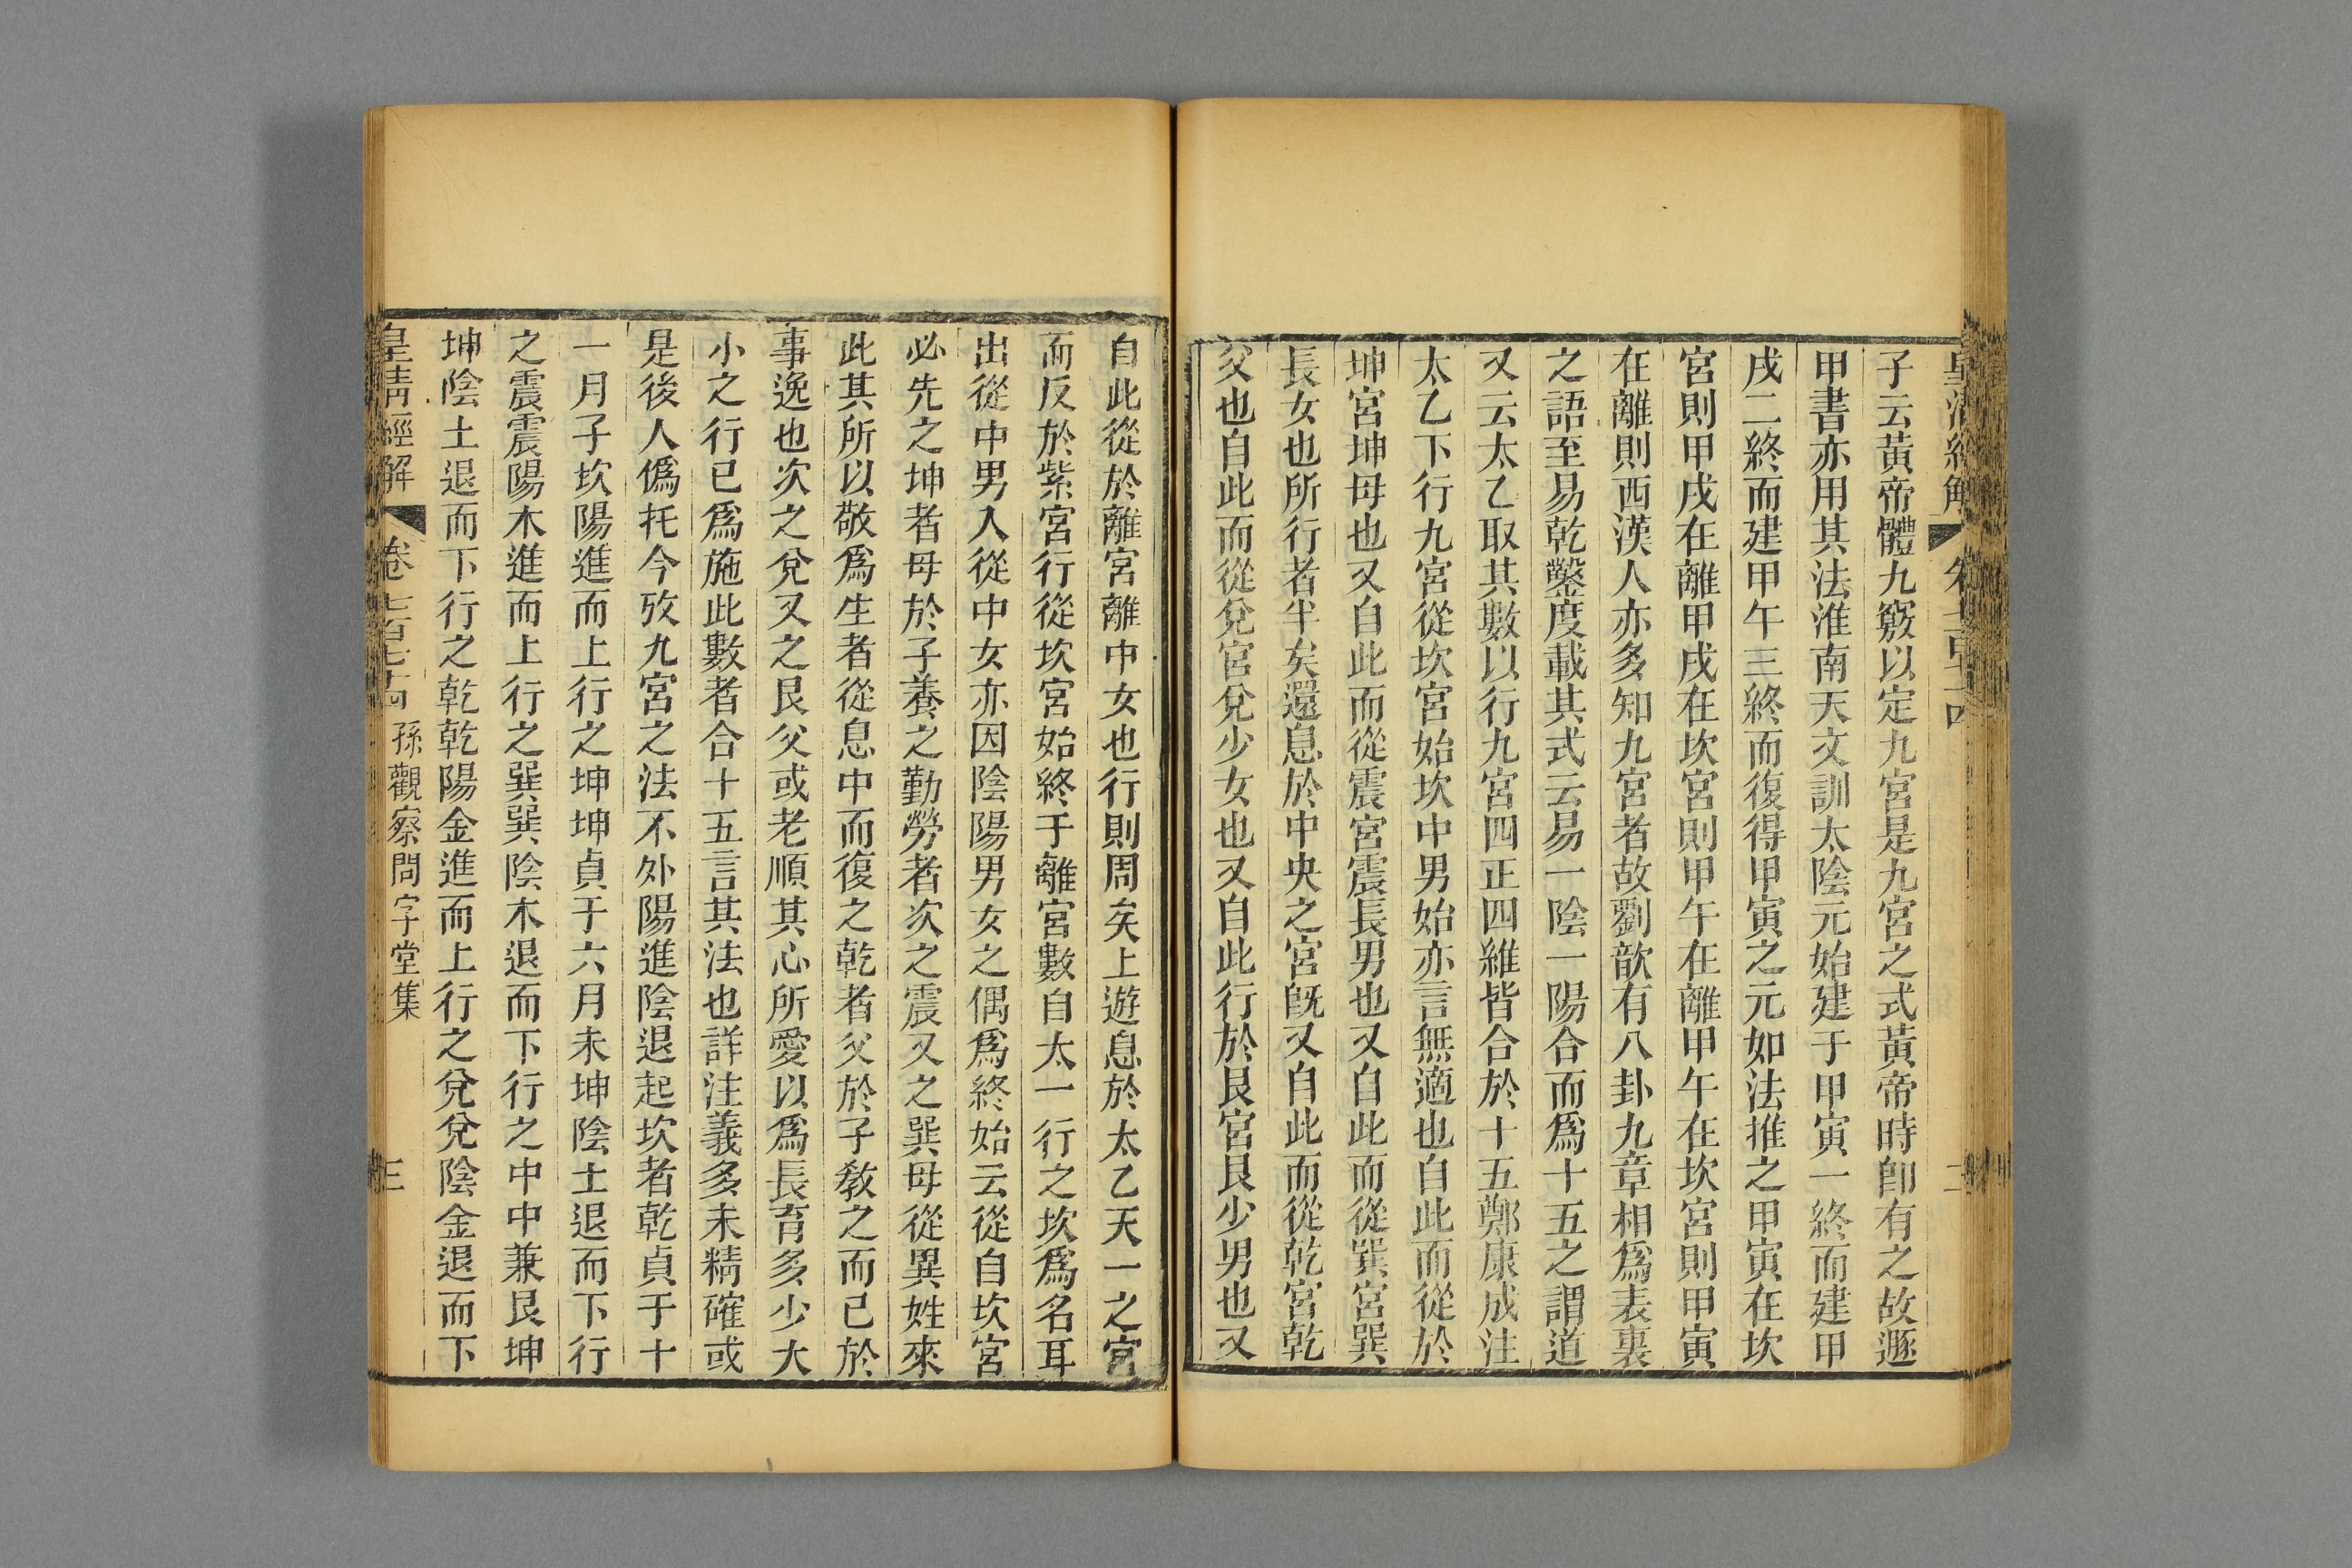 子云黃帝體九竅以定九宮是九宮之式黃帝時卽有之故遯
甲書亦用其法淮南天文訓太陰元始建于甲寅一終而建甲
戌二終而建甲午三終而復得甲寅之元如法推之甲寅在坎
宮則甲戌在離甲戌在坎宮則甲午在離甲午在坎宮則甲寅
在離則西漢人亦多知九宮者故劉歆有八卦九章相爲表裏
之語至易乾鑿度載其式云易一陰一陽合而爲十五之謂道
又云太乙取其數以行九宮四正四維皆合於十五鄭康成注
太乙下行九宮從坎宮始坎中男始亦言無適也自此而從於
坤宮坤母也又自此而從震宮震長男也又自此而從巽宮巽
長女也所行者半矣還息於中央之宮旣又自此而從乾宮乾
父也自此而從兌宮兌少女也又自此行於艮宮艮少男也又
自此從於離宮離中女也行則周矣上遊息於太乙天一之宮
而反於紫宮行從坎宮始終于離宮數自太一行之坎爲名耳
出從中男入從中女亦因陰陽男女之偶爲終始云從自坎宮
必先之坤者母於子養之勤勞者次之震又之巽母從異姓來
此其所以敬爲生者從息中而復之乾者父於子敎之而已於
事逸也次之兌又之艮父或老順其心所愛以爲長育多少大
小之行已爲施此數者合十五言其法也詳注義多未精確或
是後人僞托今攷九宮之法不外陽進陰退起坎者乾貞于十
一月子坎陽進而上行之坤坤貞于六月未坤陰土退而下行
之震震陽木進而上行之巽巽陰木退而下行之中中兼艮坤
坤陰土退而下行之乾乾陽金進而上行之兌兌陰金退而下
皇淸經解 卷七百七十四 孫觀察問字堂集 三